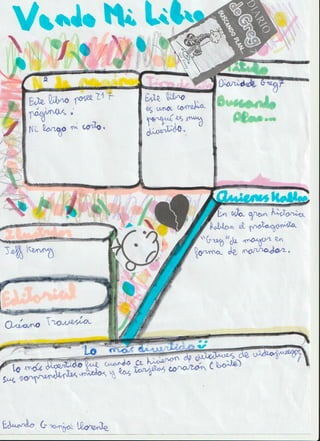 Vendo Mi Libro
DIARIO
de Greg
BUSCANDO PLAN
Nº de páginas
Este libro posee 217
páginas.
Ni largo ni corto.
Este libro
es una comedia
porqué es muy
divertido.
Título
Diario de Greg 7
Buscando
Plan...
Quienes Hablan
En esta gran historia
hablan el protagonista
"Greg" de mayor en
forma de narrador.
Ilustrador
Jeff Kenny
Editorial
Océano Travesía
Lo más divertido
Lo más divertido fue cuando se hicieron de detectives de videojuegos,
sus sorprendentes miedos y las tarjetas corazón (baile)
Eduardo Granjal Llorente